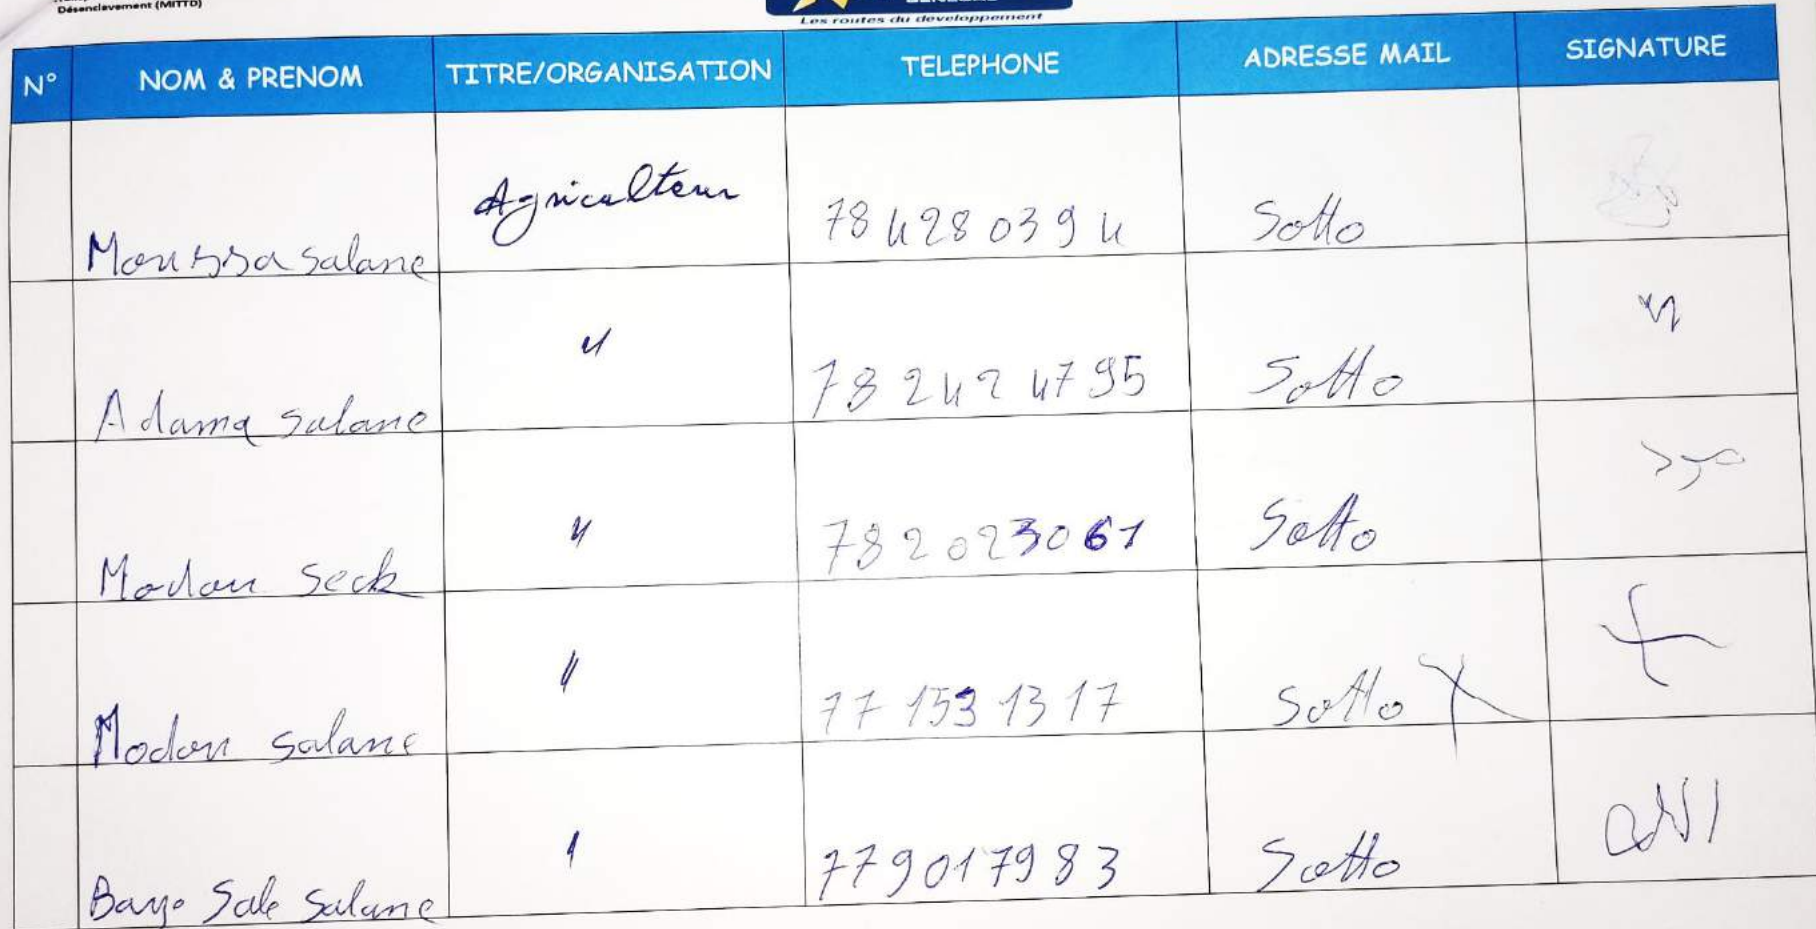 Désenclavement (MITTD)
Les routes du developpement
N° NOM & PRENOM TITRE/ORGANISATION TELEPHONE ADRESSE MAIL SIGNATURE
Moussa Salane Agriculteur 78 428 03 94 Sotto
Adama Salane " 78 242 47 95 Sotto
Modou Seck " 78 202 30 61 Sotto
Modou Salane " 77 153 13 17 Sotto
Baye Sale Salane " 77 901 79 83 Sotto